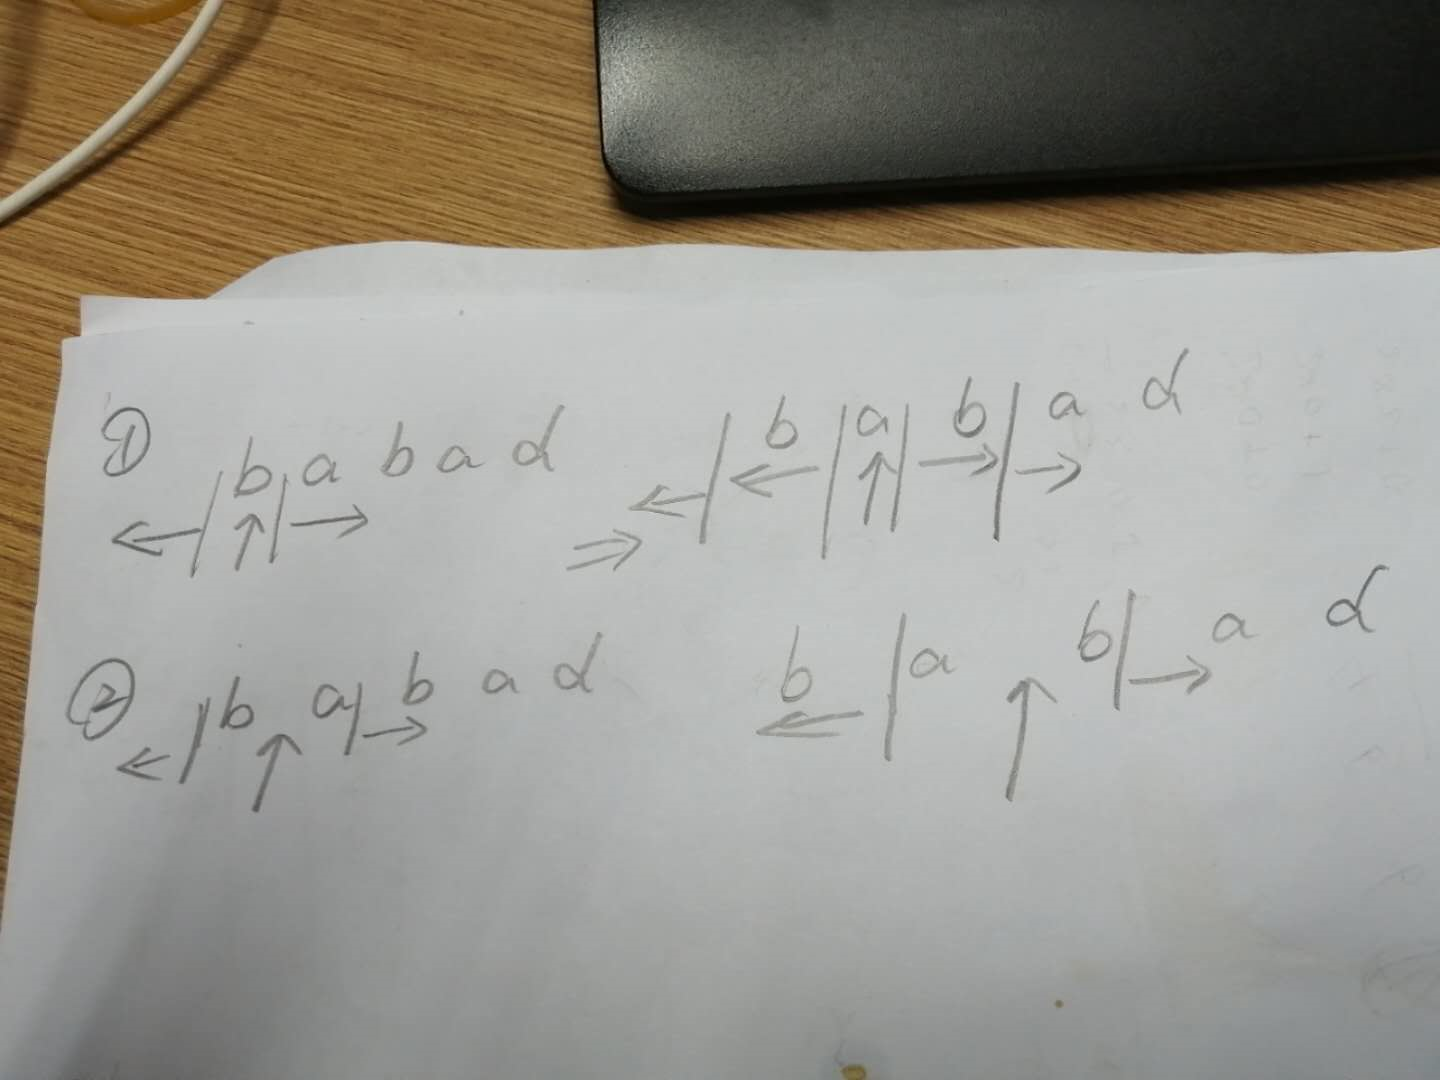 ① ←|b↑|→a b a d ⇒ ←|←b|a↑|b→|→a d
② ←|b↑a|→b a d b←|a↑b|→a d